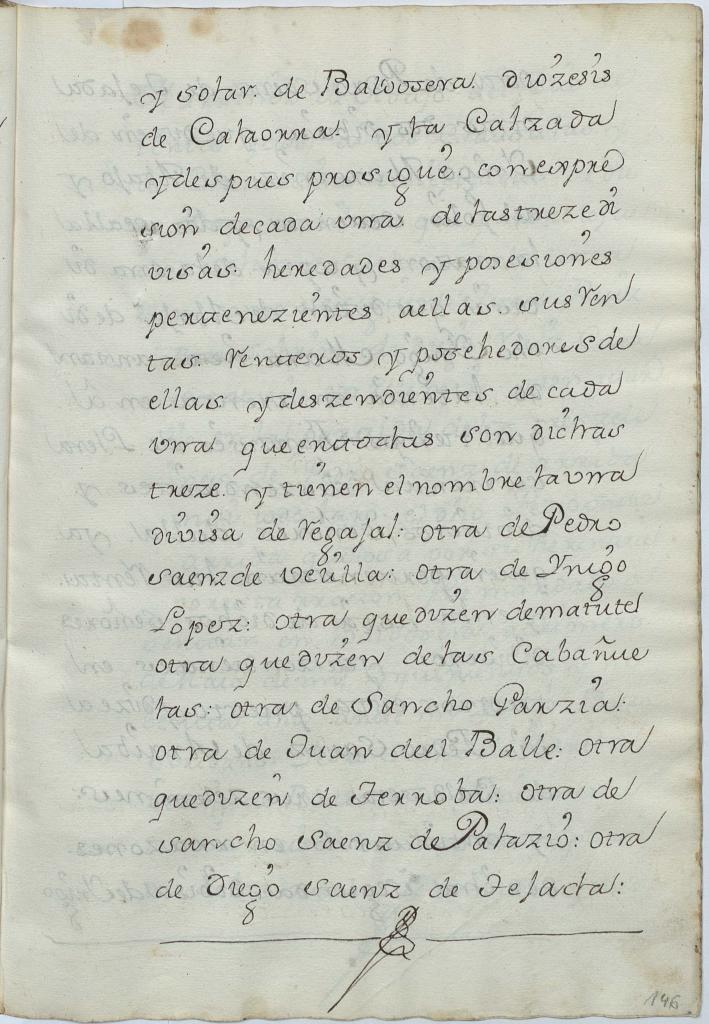 y solar. de Baldosera. diozesis
de Calaorra. y la Calzada
y despues prosigue. con expre
sion de cada una. de las treze di
visas. heredades y posesiones
pertenezientes a ellas. sus Ven
tas. Venteros y posehedores de
ellas y deszendientes de cada
una que en todas son dichas
treze. y tienen el nombre la una
divisa de Vegafal: otra de Pedro
saenz de Velilla: otra de Ynigo
Lopez: otra que duzen de matute
otra que duzen de las Cabañue
las: otra de Sancho Garzia:
otra de Juan deel Balle: otra
que duzen de Terroba: otra de
sancho saenz de Palazio: otra
de Diego saenz de Tejada:
146